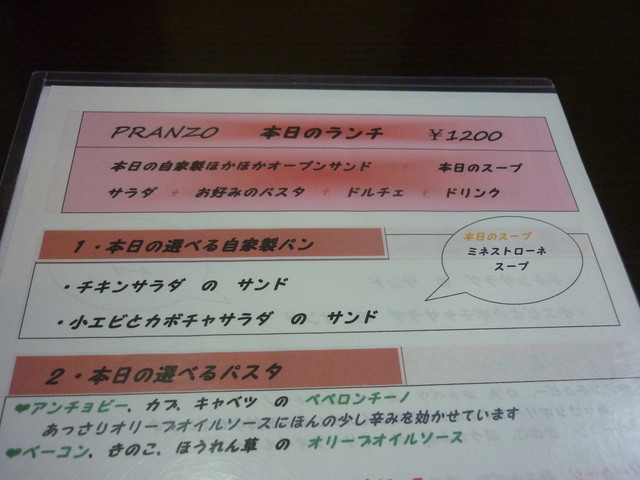 PRANZO 本日のランチ ¥1200
本日の自家製ほかほかオープンサンド + 本日のスープ
サラダ + お好みのパスタ + ドルチェ + ドリンク
1・本日の選べる自家製パン
本日のスープ
ミネストローネ
スープ
・チキンサラダ の サンド
・小エビとカボチャサラダ の サンド
2・本日の選べるパスタ
❤アンチョビー、カブ、キャベツ の ペペロンチーノ
あっさりオリーブオイルソースにほんの少し辛みを効かせています
❤ベーコン、きのこ、ほうれん草 の オリーブオイルソース